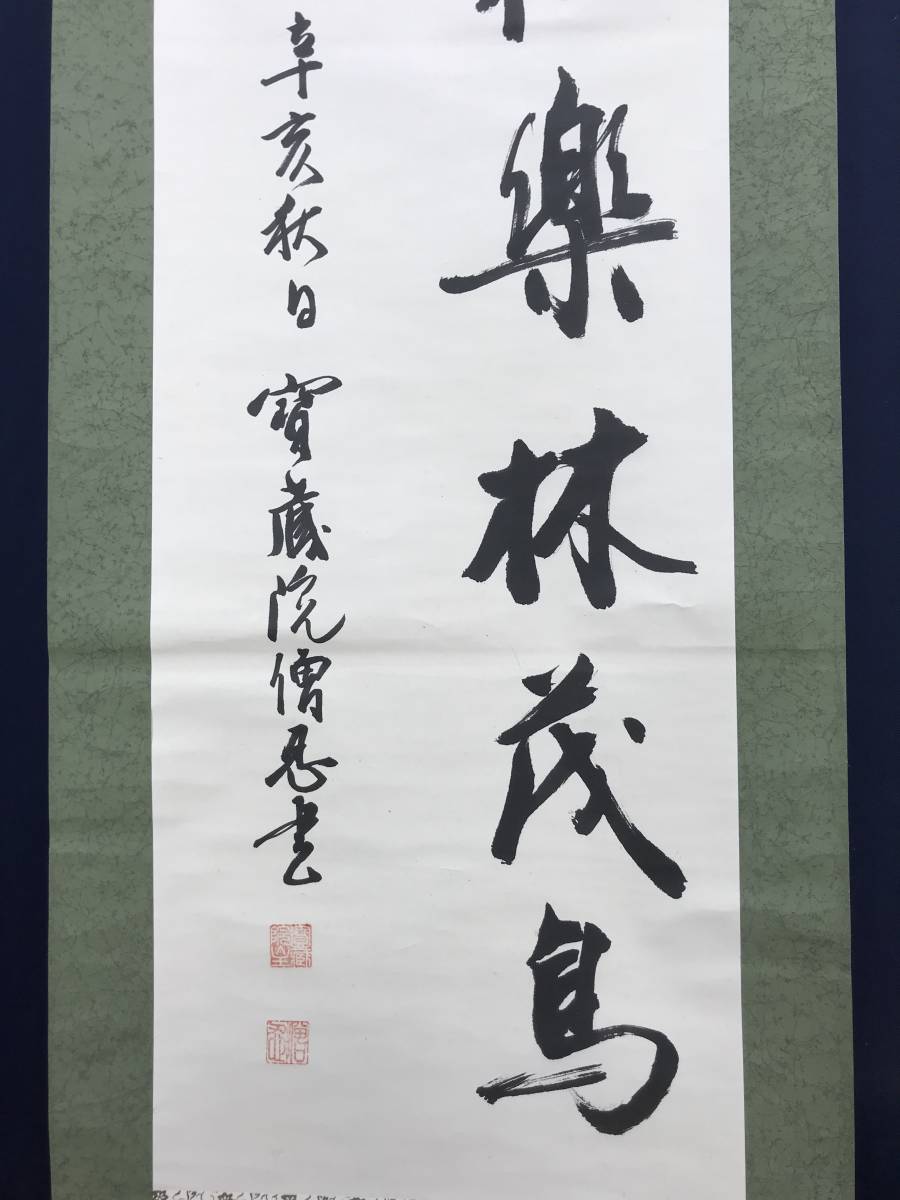 樂林茂鳥
辛亥秋日 寶蔵院僧忍書